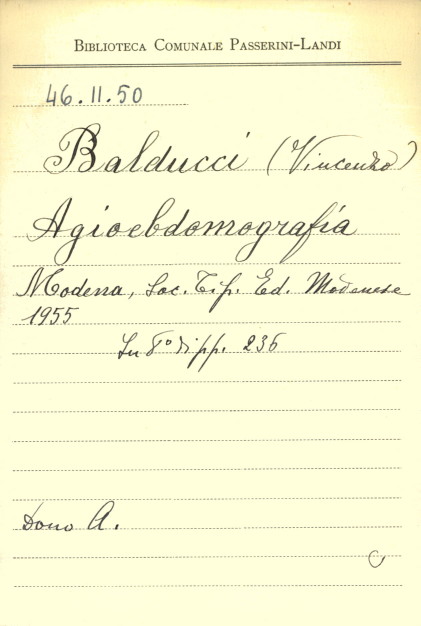 BIBLIOTECA COMUNALE PASSERINI-LANDI
46.II.50
Balducci (Vincenzo)
Agioebdomografia
Modena, Soc. Tip. Ed. Modenese
1955
In 8° di pp. 236
Dono A.
C